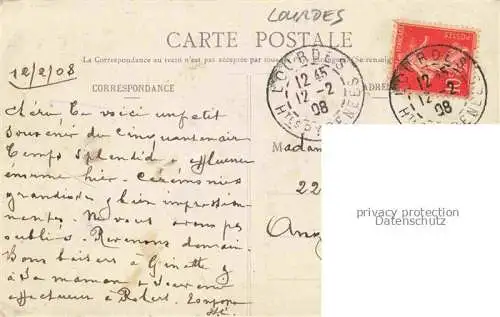 LOURDES
CARTE POSTALE
La Correspondance au recto n'est pas acceptée par tous
CORRESPONDANCE
12/2/08
Chérie Te voici un petit
souvenir du Cinquantenaire
Temps splendide, affluence
énorme hier. Cérémonies
grandioses plus impression-
nantes. Ne vous avons pas
oubliés. Revenons demain.
Bons baisers à Ginette &
à sa maman & souvenir
affectueux à Robert.
LOURDES
12 45
12-2
08
HTES PYRENEES
LOURDES
12
12-2
08
HTES PYRENEES
Madame
22
Ang
privacy protection
Datenschutz